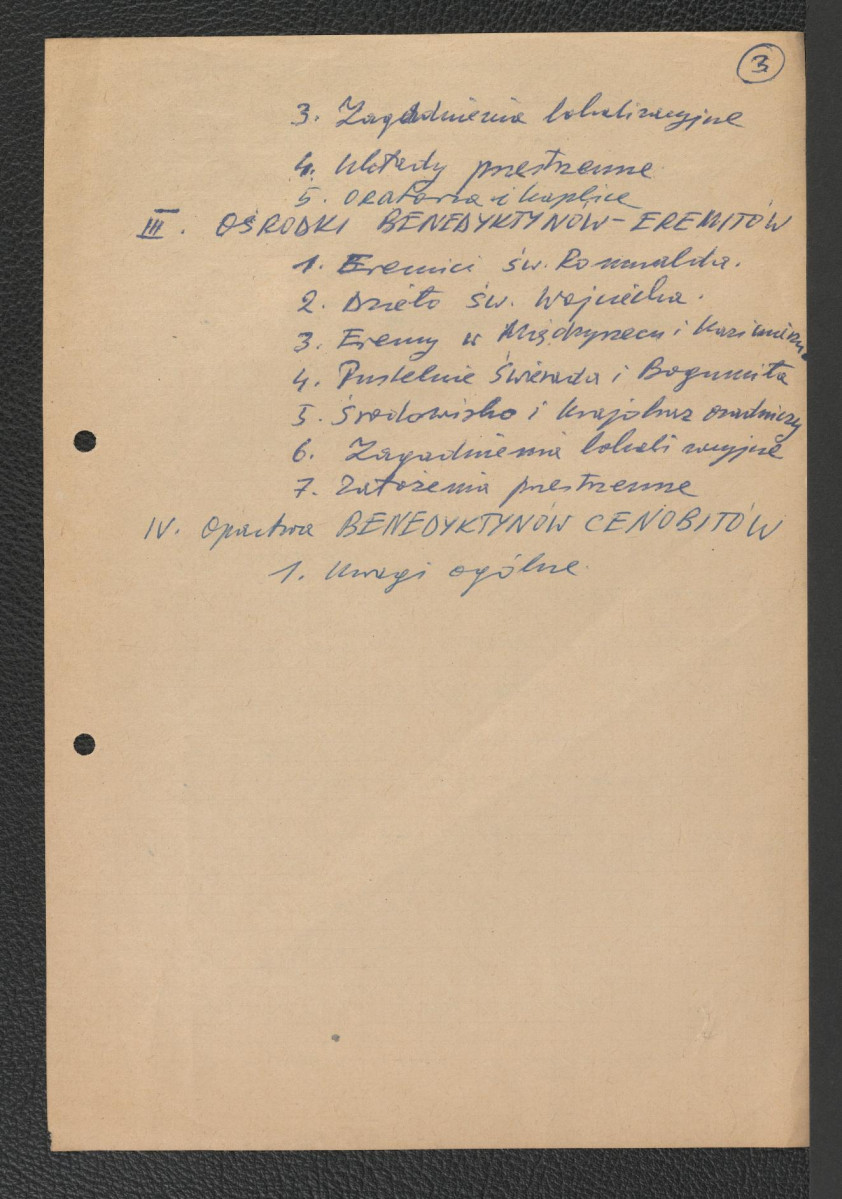 3
3. Zagadnienia lokalizacyjne
4. Układy przestrzenne
5. Oratoria i kaplice
III. OŚRODKI BENEDYKTYNÓW-EREMITÓW
1. Eremici św. Romualda.
2. Dzieło św. Wojciecha.
3. Eremy w Międzyrzeczu i Kazimierzu
4. Pustelnie Świerada i Bogumiła
5. Środowisko i krajobraz osadniczy
6. Zagadnienia lokalizacyjne
7. Założenia przestrzenne
IV. Opactwa BENEDYKTYNÓW CENOBITÓW
1. Uwagi ogólne